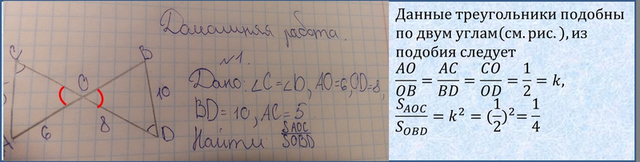 Домашняя работа.
C
B
O
10
6
8
A
D
№1.
Дано: ∠C=∠D, AO=6, OD=8,
BD=10, AC=5
Найти S_AOC/S_OBD
Данные треугольники подобны
по двум углам(см. рис.), из
подобия следует
AO/OB = AC/BD = CO/OD = 1/2 = k,
S_AOC/S_OBD = k² = (1/2)² = 1/4